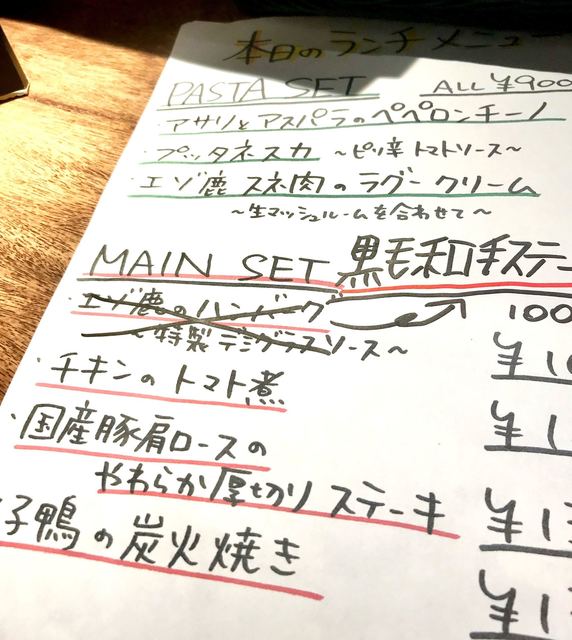 本日のランチメニュー
PASTA SET ALL ¥900
アサリとアスパラのペペロンチーノ
・プッタネスカ ～ピリ辛トマトソース～
・エゾ鹿 スネ肉のラグークリーム
～生マッシュルームを合わせて～
MAIN SET 黒毛和牛ステー
・エゾ鹿のハンバーグ 100
～特製デミグラスソース～ ¥1
・チキンのトマト煮
¥1
・国産豚肩ロースの
やわらか厚切りステーキ ¥1
子鴨の炭火焼き
¥1